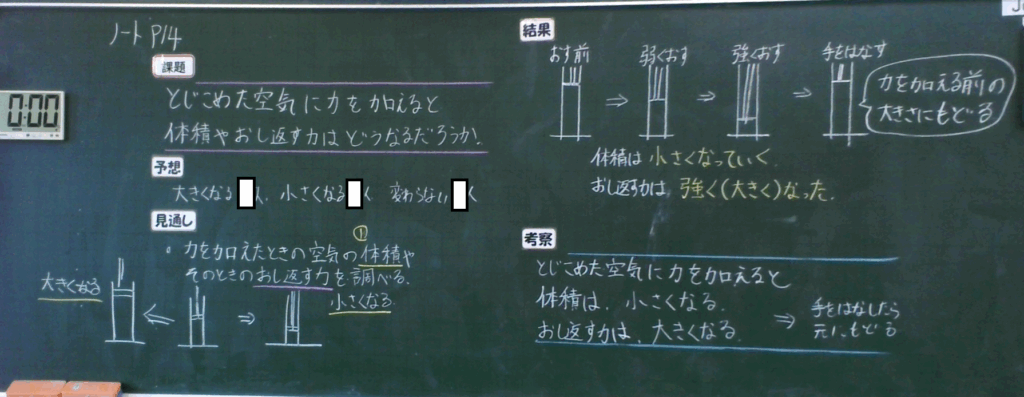 ノート P14
課題
とじこめた空気に力を加えると
体積やおし返す力はどうなるだろうか。
予想
大きくなる 人、小さくなる 人 変わらない 人
見通し
。力を加えたときの空気の①体積や
そのときのおし返す力を調べる。
大きくなる
小さくなる
0:00
結果
おす前 ⇒ 弱くおす ⇒ 強くおす ⇒ 手をはなす
力を加える前の
大きさにもどる
体積は 小さくなっていく。
おし返す力は、強く(大きく)なった。
考察
とじこめた空気に力を加えると
体積は、小さくなる。
おし返す力は、大きくなる。
⇒ 手をはなしたら
元にもどる